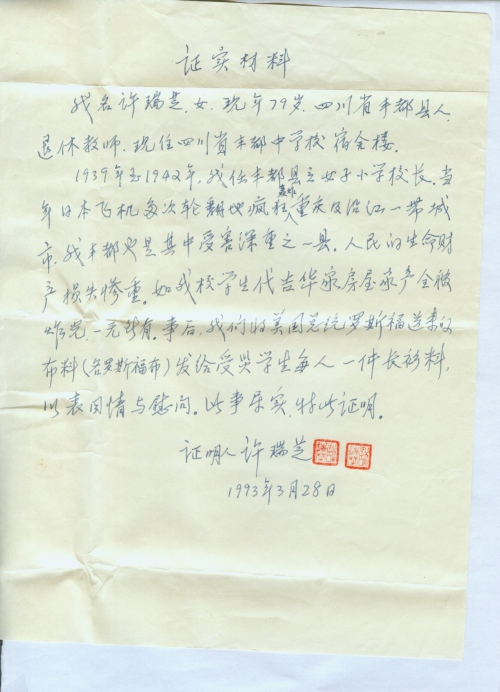 证实材料
我名许瑞芝.女.现年79岁.四川省丰都县人.
退休教师.现住四川省丰都中学校宿舍楼.
1939年至1942年.我任丰都县立女子小学校长.当
年日本飞机多次轮翻地疯狂轰炸重庆及沿江一带城
市.我丰都也是其中受害深重之一县.人民的生命财
产损失惨重.如我校学生代吉华家房屋家产全被
炸光.一无所有.事后.我们将美国总统罗斯福送来的
布料(名罗斯福布)发给受灾学生每人一件长衫料,
以表同情与慰问.此事属实,特此证明.
证明人许瑞芝
1993年3月28日